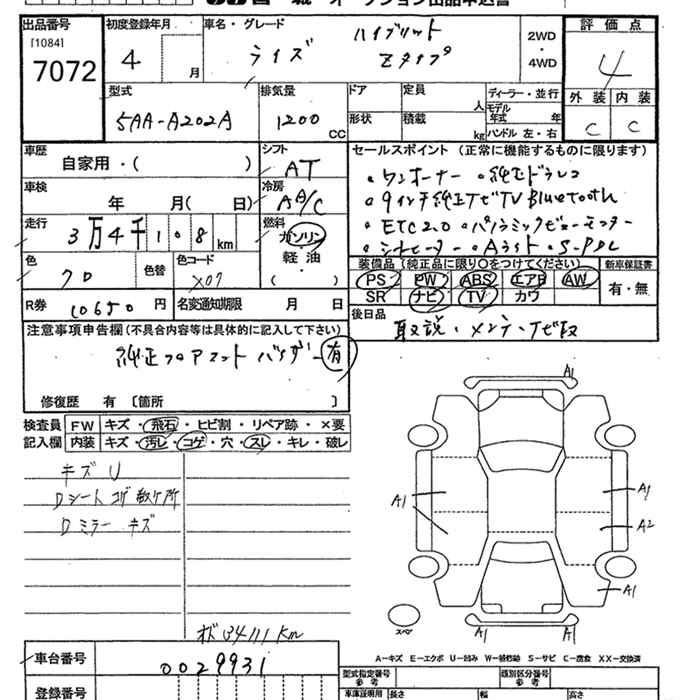 出品番号
[1084]
7072
初度登録年月
4 月
車名・グレード
ライズ ハイブリット
Zタイプ
2WD
・
4WD
評価点
4
外装 内装
C C
型式
5AA-A202A
排気量
1200 CC
ドア
形状
定員 人
積載 kg
ディーラー・並行
モデル年式 年式
ハンドル 左・右
車歴
自家用・( )
シフト
AT
車検
年 月( 日)
冷房
A/C
走行
3万4千108km
燃料
ガソリン
軽油
( )
色
クロ
色替
色コード
X07
R券
10650円
名変通知期限 月 日
セールスポイント (正常に機能するものに限ります)
。ワンオーナー 。純正ドラレコ
。9インチ純正ナビTV Bluetooth
。ETC2.0 。パノラミックビューモニター
。シートヒーター 。Aライト
装備品(純正品に限り○をつけてください)
PS PW ABS エアB AW
SR ナビ TV カワ
新車保証書
有・無
後日品
取説・メンテ・ナビ取
注意事項申告欄(不具合内容等は具体的に記入して下さい)
純正フロアマット バイザー 有
修復歴 有 〔箇所 〕
検査員
記入欄
FW キズ・飛石・ヒビ割・リペア跡・×要
内装 キズ・汚レ・コゲ・穴・スレ・キレ・破レ
キズU
Dシート コゲ 数ヶ所
Dミラー キズ
メーター 34111km
A1
A1
A1
A2
A1
A1
A1
スペア
A-キズ E-エクボ U-凹み W-補修跡 S-サビ C-腐食 XX-交換済
車台番号
0029931
登録番号
型式指定番号
参考
類別区分番号
参考
車庫証明用 長さ 幅 高さ